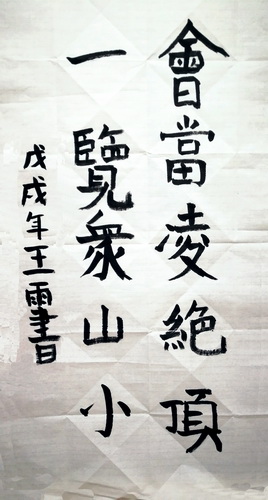 會當凌絕頂
一覽衆山小
戊戌年王雨書日